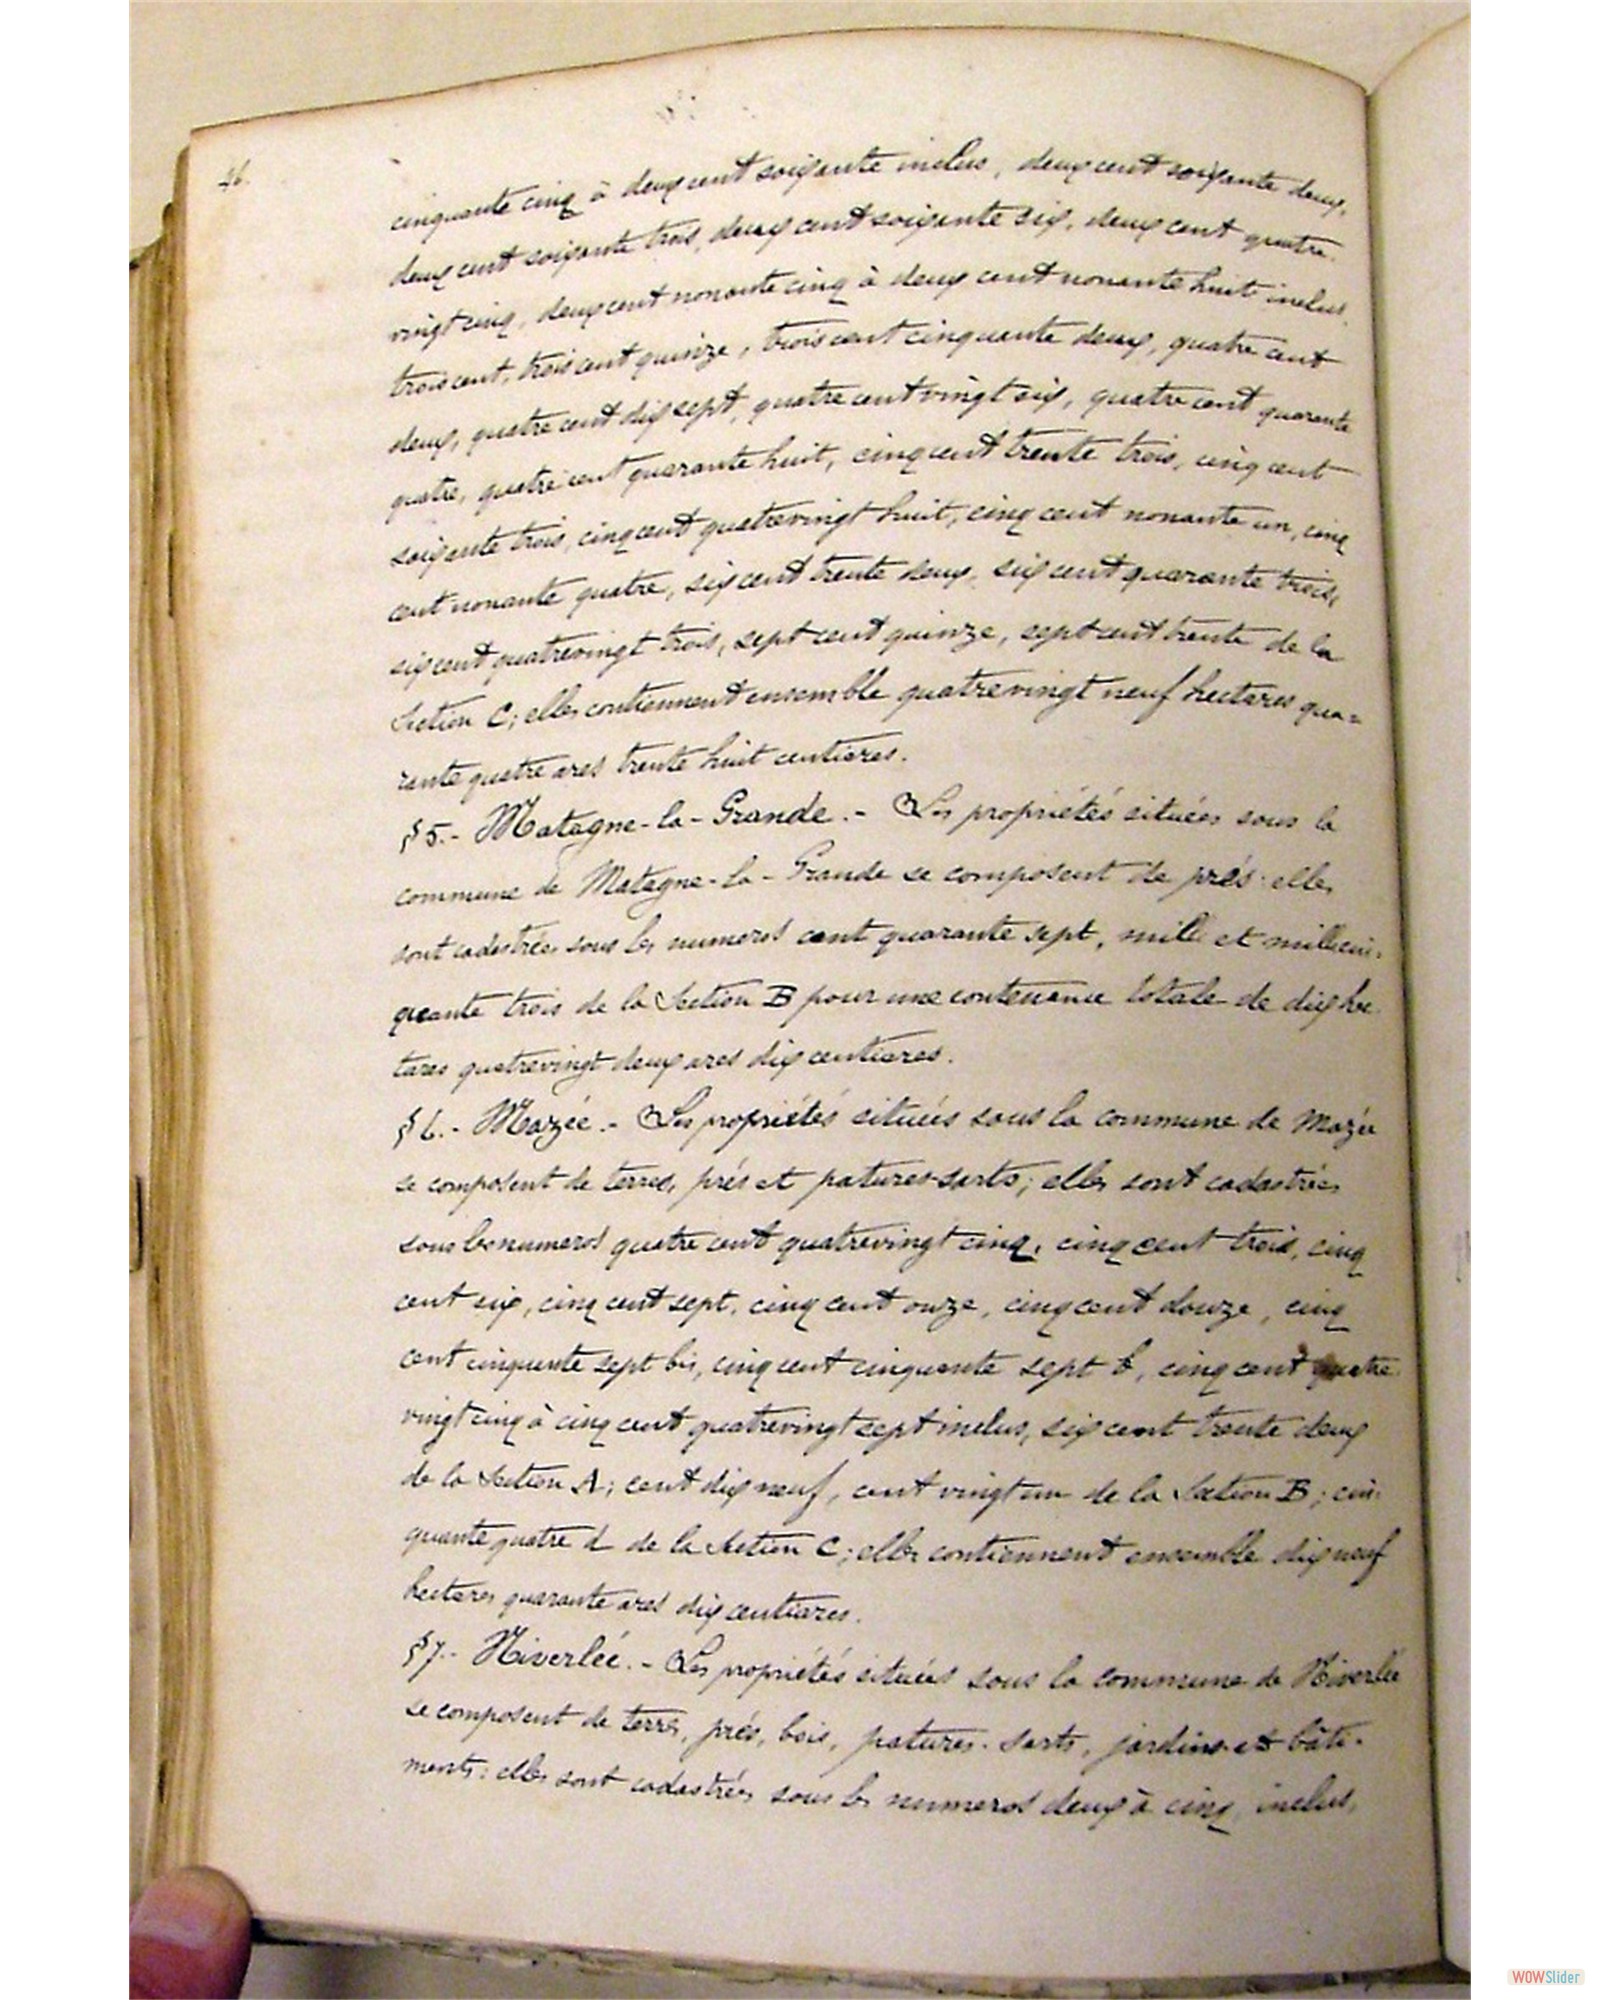 46.
cinquante cinq à deux cent soixante inclus, deux cent soixante deux,
deux cent soixante trois, deux cent soixante six, deux cent quatre
vingt cinq, deux cent nonante cinq à deux cent nonante huit inclus,
trois cent, trois cent quinze, trois cent cinquante deux, quatre cent
deux, quatre cent dix sept, quatre cent vingt six, quatre cent quarante
quatre, quatre cent quarante huit, cinq cent trente trois, cinq cent
soixante trois, cinq cent quatrevingt huit, cinq cent nonante un, cinq
cent nonante quatre, six cent trente deux, six cent quarante trois,
six cent quatrevingt trois, sept cent quinze, sept cent trente de la
Section C; elles contiennent ensemble quatrevingt neuf hectares qua=
rante quatre ares trente huit centiares.
§5.- Matagne-la-Grande.- Les propriétés situées sous la
commune de Matagne-la-Grande se composent de prés: elles
sont cadastrées sous les numeros cent quarante sept, mille et mille cin-
quante trois de la Section B pour une contenance totale de dix hec
tares quatrevingt deux ares dix centiares.
§6.- Mazée.- Les propriétés situées sous la commune de Mazée
se composent de terres, prés et patures-sarts; elles sont cadastrées
sous les numeros quatre cent quatrevingt cinq, cinq cent trois, cinq
cent six, cinq cent sept, cinq cent onze, cinq cent douze, cinq
cent cinquante sept bis, cinq cent cinquante sept b, cinq cent quatre
vingt cinq à cinq cent quatrevingt sept inclus, six cent trente deux
de la Section A; cent dix neuf, cent vingt un de la Section B; cin-
quante quatre d de la Section C; elles contiennent ensemble dix neuf
hectares quarante ares dix centiares.
§7.- Niverlée.- Les propriétés situées sous la commune de Niverlée
se composent de terres, prés, bois, patures-sarts, jardins et bâti-
ments: elles sont cadastrées sous les numeros deux à cinq inclus,
WOWSlider